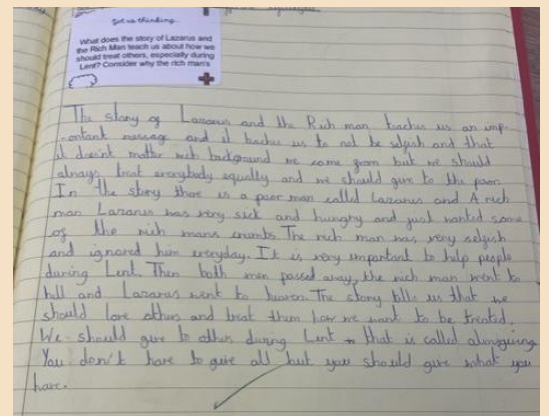 Get us thinking...
What does the story of Lazarus and
the Rich Man teach us about how we
should treat others, especially during
Lent? Consider why the rich man's
The story of Lazarus and the Rich man teaches us an imp-
-ortant message and it teaches us to not be selfish and that
it doesn't matter wich background we come from but we should
always treat everybody equally and we should give to the poor.
In the story there is a poor man called Lazarus and A rich
man Lazarus was very sick and hungry and just wanted some
of the rich mans crumbs. The rich man was very selfish
and ignored him everyday. It is very important to help people
during Lent. Then both men passed away, the rich man went to
hell and Lazarus went to heaven. The story tells us that we
should love others and treat them how we want to be treated.
We should give to others during Lent that is called almsgiving
You don't have to give all but you should give what you
have.